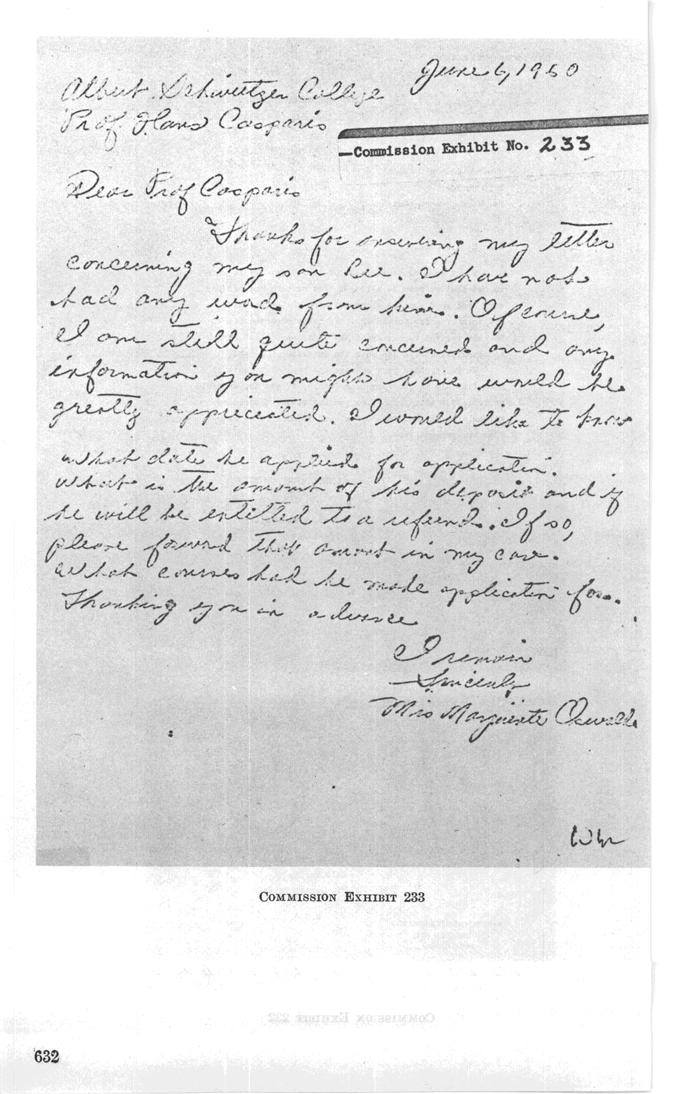 June 6, 1960
Albert Schweitzer College
Prof Hans Casparis
—Commission Exhibit No. 233
Dear Prof Casparis
Thanks for answering my letter
concerning my son Lee. I have not
had any word from him. Of course,
I am still quite concerned and any
information you might have would be
greatly appreciated. I would like to know
what date he applied for application.
What is the amount of his deposit and if
he will be entitled to a refund. If so,
please forward that amount in my care.
What courses had he made application for.
Thanking you in advance
I remain
Sincerely
Mrs Marguerite Oswald
COMMISSION EXHIBIT 233
COMMISSION EXHIBIT 232
632